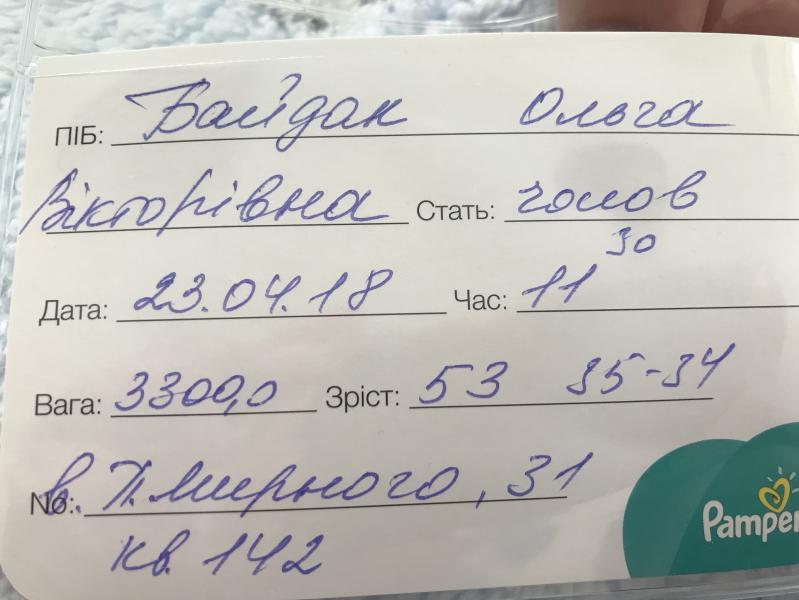 ПІБ: Байдак Ольга
Вікторівна Стать: чолов
Дата: 23.04.18 Час: 11 30
Вага: 3300,0 Зріст: 53 35-34
No: в. П.Мирного, 31
кв. 142
Pamper